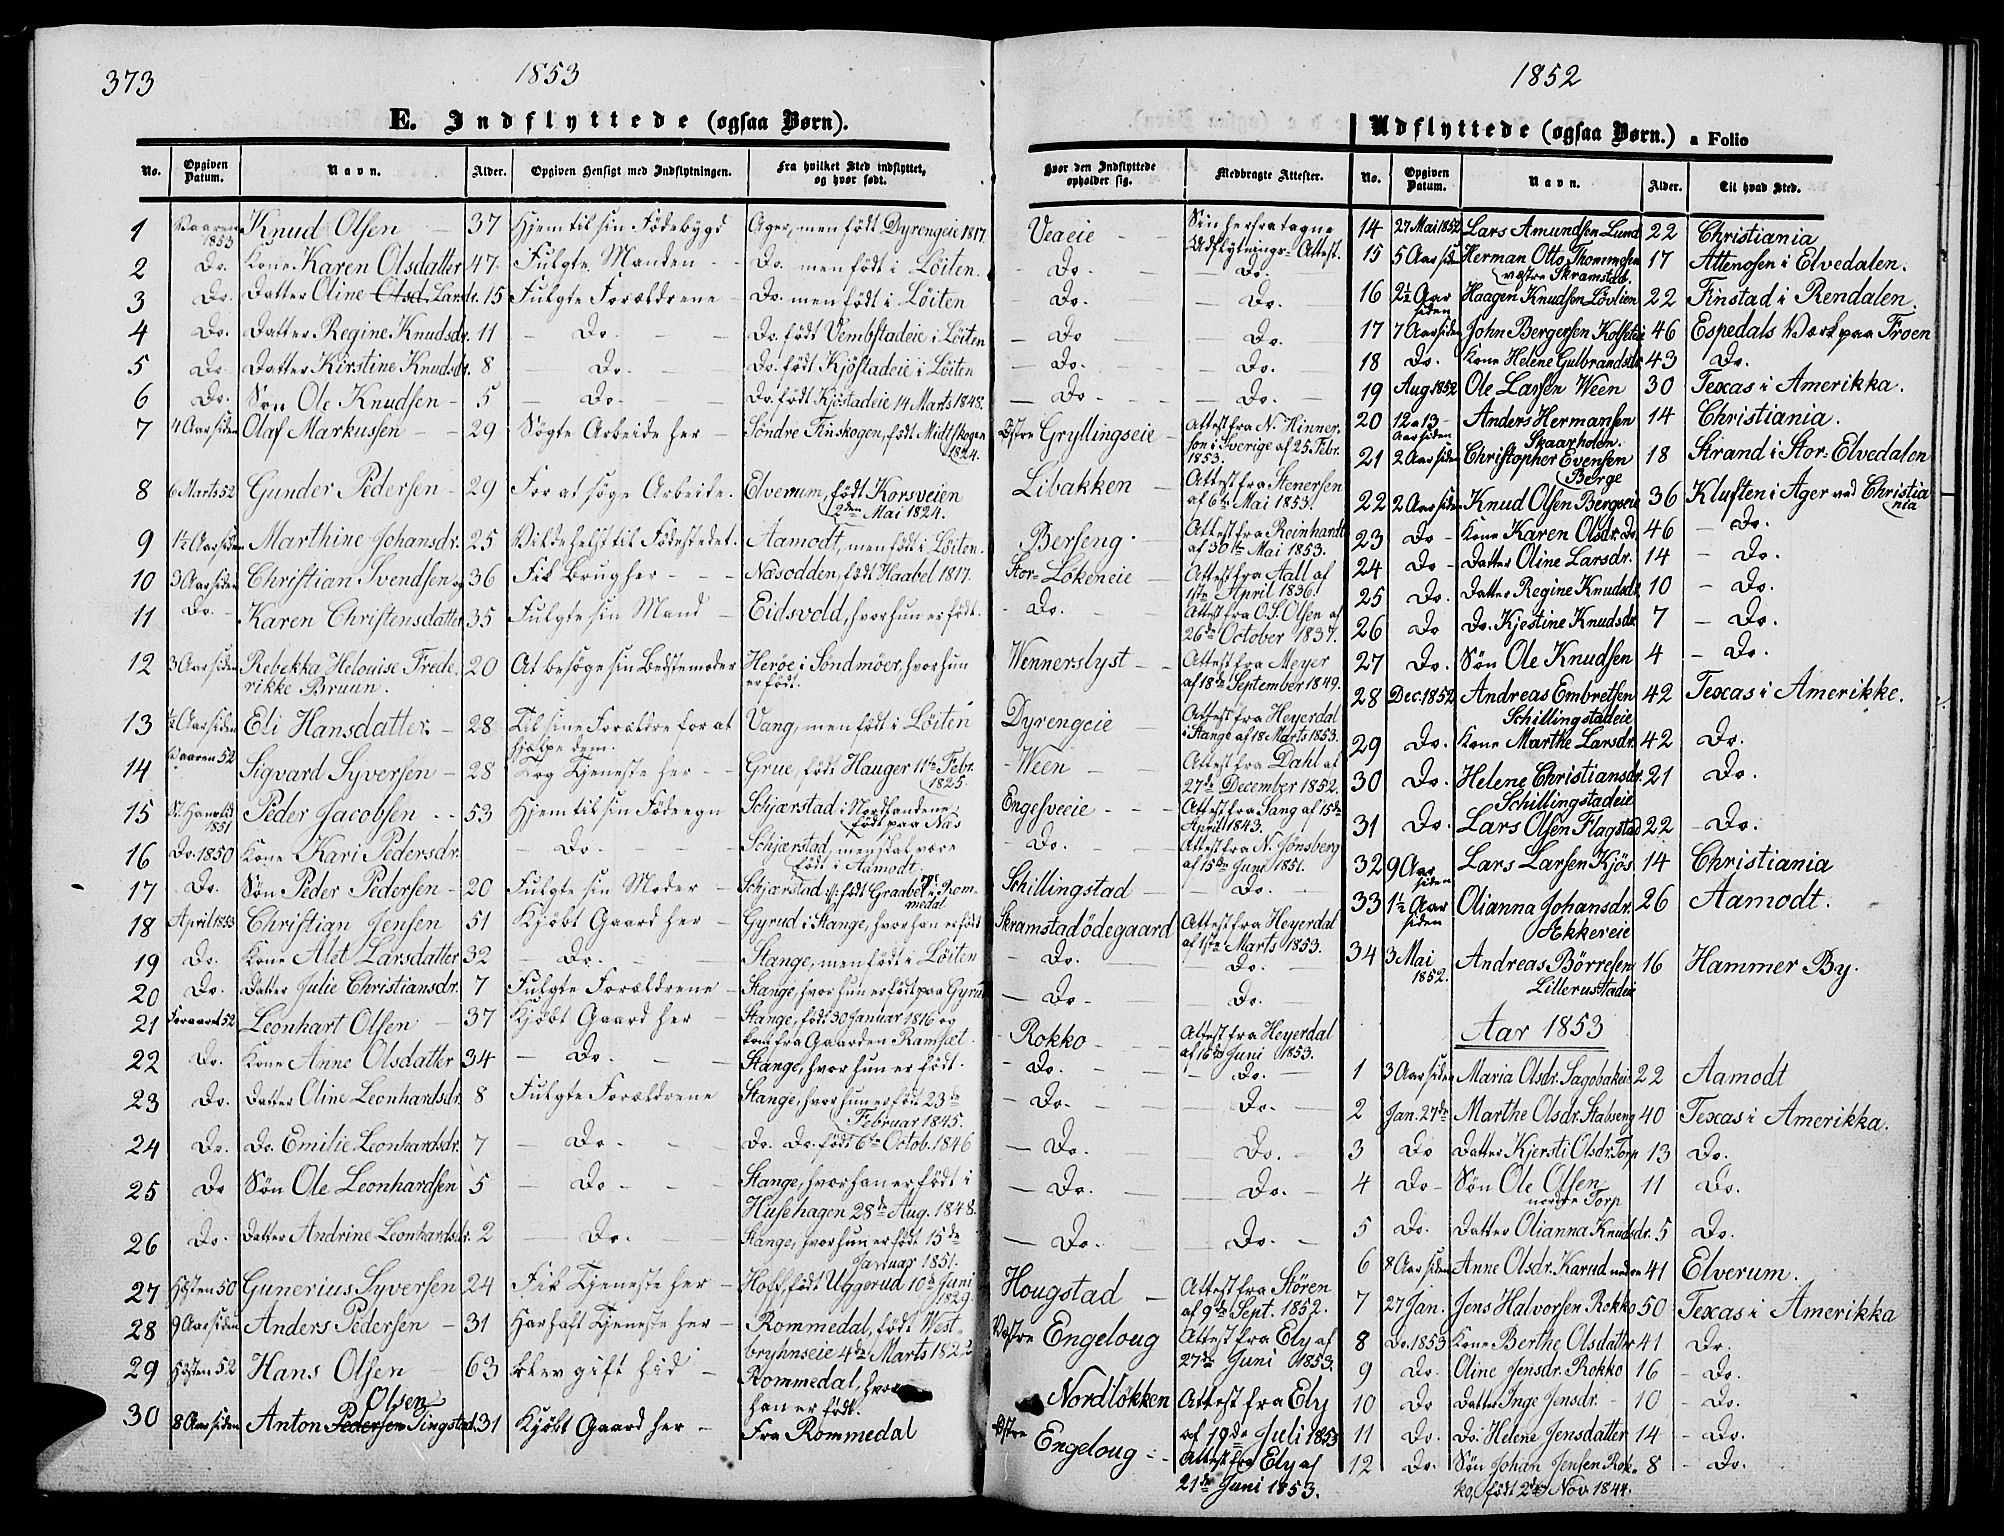 373
1853
E. Indflyttede (ogsaa Børn).
No. Opgiven Datum. Navn. Alder. Opgiven Hensigt med Indflytningen. Fra hvilket Sted indflyttet, og hvor født.
1 Vaaren 1853 Knud Olsen 37 Hjem til sin Fødebygd Ager, men født Dyrengeie 1817.
2 Do. Kone Karen Olsdatter 47 Fulgte Manden Do. men født i Löiten.
3 Do. Datter Oline Olsd. Larsdr. 15 Fulgte Forældrene Do. men født i Löiten
4 Do. Datter Regine Knudsdr. 11 Do. Do. født Vembstadeie i Löiten
5 Do. Datter Kirstine Knudsdr. 8 Do. Do. født Kjöstadeie i Löiten
6 Do. Søn Ole Knudsen 5 Do. Do. født Kjöstadeie 14 Marts 1848.
7 4 Aar siden Olaf Markussen 29 Søgte Arbeide her Söndre Finskogen, født Midtskogen 1824.
8 6 Marts 52 Gunder Pedersen 29 For at søge Arbeide. Elverum, født Korsveien 2den Mai 1824.
9 1½ Aar siden Marthine Johansdr. 25 Vilde helst til Fødestedet. Aamodt, men født i Löiten.
10 3 Aar siden Christian Svendsen og 36 Fik Brug her Næsodden, født Haabel 1817.
11 Do. Karen Christensdatter 35 Fulgte sin Mand Eidsvold, hvor hun er født.
12 3 Aar siden Rebekka Helouise Frederikke Bruun. 20 At besøge sin Bedstemoder Herøe i Söndmöer, hvor hun er født.
13 ½ Aar siden Eli Hansdatter. 28 Til sine Forældre for at hjelpe dem. Vang, men født i Löiten
14 Vaaren 52 Sigvard Syversen 28 Tog Tjeneste her Grue, født Hauger 11te Febr. 1825.
15 1851 Peder Jacobsen 53 Hjem til sin Fødeegn Schjærstad i Nordlandene, født paa Næs
16 Do. 1850 Kone Kari Pedersdr. Do. Schjærstad, men skal være født i Aamodt.
17 Do. Søn Peder Pedersen 20 Fulgte sin Moder Schjærstad født Graabergs i Rommedal
18 April 1853 Christian Jensen 51 Kjöbt Gaard her Gyrud i Stange, hvor han er født
19 Do. Kone Alet Larsdatter 32 Do. Stange, men født i Löiten
20 Do. Datter Julie Christiansdr. 7 Fulgte Forældrene Stange, hvor hun er født paa Gyrud
21 Foraaret 52 Leonhart Olsen 37 Kjöbt Gaard her Stange, født 30 Januar 1816 og kom fra Gaarden Ramset.
22 Do. Kone Anne Olsdatter 34 Do. Stange, hvor hun er født.
23 Do. Datter Oline Leonhardsdr. 8 Fulgte Forældrene Stange, hvor hun er født 23de Februar 1845.
24 Do. Do. Emilie Leonhardsdr. 7 Do. Do. Do. født 6te Octob. 1846
25 Do Søn Ole Leonhardsen 5 Do. Stange, hvor han er født i Husehagen 28de Aug. 1848.
26 Do. Datter Andrine Leonhardsdr. 2 Do. Stange, hvor hun er født 15de Januar 1851.
27 Høsten 50 Gunerius Syversen 24 Fik Tjeneste her Hoff, født Uggerud 10de Juni 1829
28 9 Aar siden Anders Pedersen 31 Har haft Tjeneste her Rommedal, født Westbryhnseie 4de Marts 1822
29 Høsten 52 Hans Olsen 63 blev gift hid Rommedal, hvor han er født.
30 8 Aar siden Anton Pedersen Olsen Tingstad 31 Kjöbt Gaard her Fra Rommedal
1852
Udflyttede (ogsaa Børn.) a Folio
Hvor den Indflyttede opholder sig. Medbragte Attester. No. Opgiven Datum. Navn. Alder. Til hvad Sted.
Veaeie Sin herfra tagne Udflytnings-Attest.
Do. Do.
Do. Do.
Do Do.
Do. Do.
Do. Do.
Østre Gryllingseie Attest fra N. Hinnerson i Sverige af 25 Febr. 1853.
Libakken Attest fra Stenersen af 6te Mai 1853.
Berseng Attest fra Reinhardt af 30te Mai 1853.
Stor-Lökeneie Attest fra Aall af 1ste April 1836.
Do. Attest fra O. S. Olsen af 26de October 1837.
Wennerslyst Attest fra Meyer af 18de September 1849.
Dyrengeie Attest fra Heyerdal i Stange af 18 Marts 1853.
Ween Attest fra Dahl af 27de December 1852.
Engesveeie Attest fra Sang af 15de April 1843.
Do. Attest fra N. Jönsberg af 15de Juni 1851.
Schillingstad Do.
Skramstadödegaard Attest fra Heyerdal af 1ste Marts 1853.
Do. Do.
Do. Do.
Rokko Attest fra Heyerdal af 16de Juni 1853.
Do. Do.
Do. Do.
Do. Do.
Do. Do.
Do. Do.
Hougstad Attest fra Stören af 9de Sept. 1852.
Vestre Engeloug Attest fra Ely af 27de Juni 1853.
Nordlökken Attest fra Ely af 19de Juli 1853
Østre Engeloug Attest fra Ely af 21de Juni 1853.
14 27 Mai 1852 Lars Amundsen Lund 22 Christiania
15 5 Aar siden Herman Otto Thommesen vestre Skramstad. 17 Attenosen i Elvedalen.
16 2½ Aar siden Haagen Knudsen Lövlien 22 Finstad i Rendalen.
17 7 Aar siden John Bergersen Kolseteie 46 Espedals Værk paa Froen
18 Do. Kone Helene Gulbrandsdr. 43 Do.
19 Aug 1852 Ole Larsen Ween 30 Texas i Amerikka.
20 12 a 13 Aar siden Anders Hermansen Skaarholen. 14 Christiania.
21 2 Aar siden Christopher Evensen Berge 18 Strand i Stor-Elvedalen
22 2 Aar siden Knud Olsen Bergseie 36 Kluften i Ager ved Christiania
23 Do Kone Karen Olsdr. Do 46 Do.
24 Do Datter Oline Larsdr. 14 Do.
25 Do. Datter Regine Knudsdr. 10 Do.
26 Do Do. Kjestine Knudsdr. 7 Do.
27 Do. Søn Ole Knudsen 4 Do.
28 Dec. 1852 Andreas Embretsen Schillingstadeie 42 Texas i Amerikke.
29 Do. Kone Marthe Larsdr. 42 Do.
30 Do. Helene Christiansdr. Schillingstadeie 21 Do.
31 Do. Lars Olsen Flagstad 22 Do.
32 9 Aar siden Lars Larsen Kjös 14 Christiania
33 1½ Aar siden Olianna Johansdr. Akkereie 26 Aamodt.
34 3 Mai 1852. Andreas Börresen Lillerustadeie 16 Hammer By.
Aar 1853
1 3 Aar siden Maria Olsdr. Sagobakeie 22 Aamodt
2 Jan. 27de Marthe Olsdr. Stabseng 40 Texas i Amerikka.
3 Do Datter Kjersti Olsdr. Torp 13 Do.
4 Do Søn Ole Olsen nordre Torp 11 Do.
5 Do. Datter Olianna Knudsdr. 5 Do.
6 8 Aar siden Anne Olsdr. Karud nedre 41 Elverum.
7 27 Jan. Jens Halvorsen Rokko 50 Texas i Amerikka
8 Do. 1853 Kone Berthe Olsdatter 41 Do.
9 Do. Oline Jensdr. Rokko 16 Do.
10 Do Datter Inge Jensdr. 10 Do.
11 Do. Do. Helene Jensdatter 14 Do.
12 Do. Søn Johan Jensen Rokko, født 2de Nov. 1844. 8 Do.